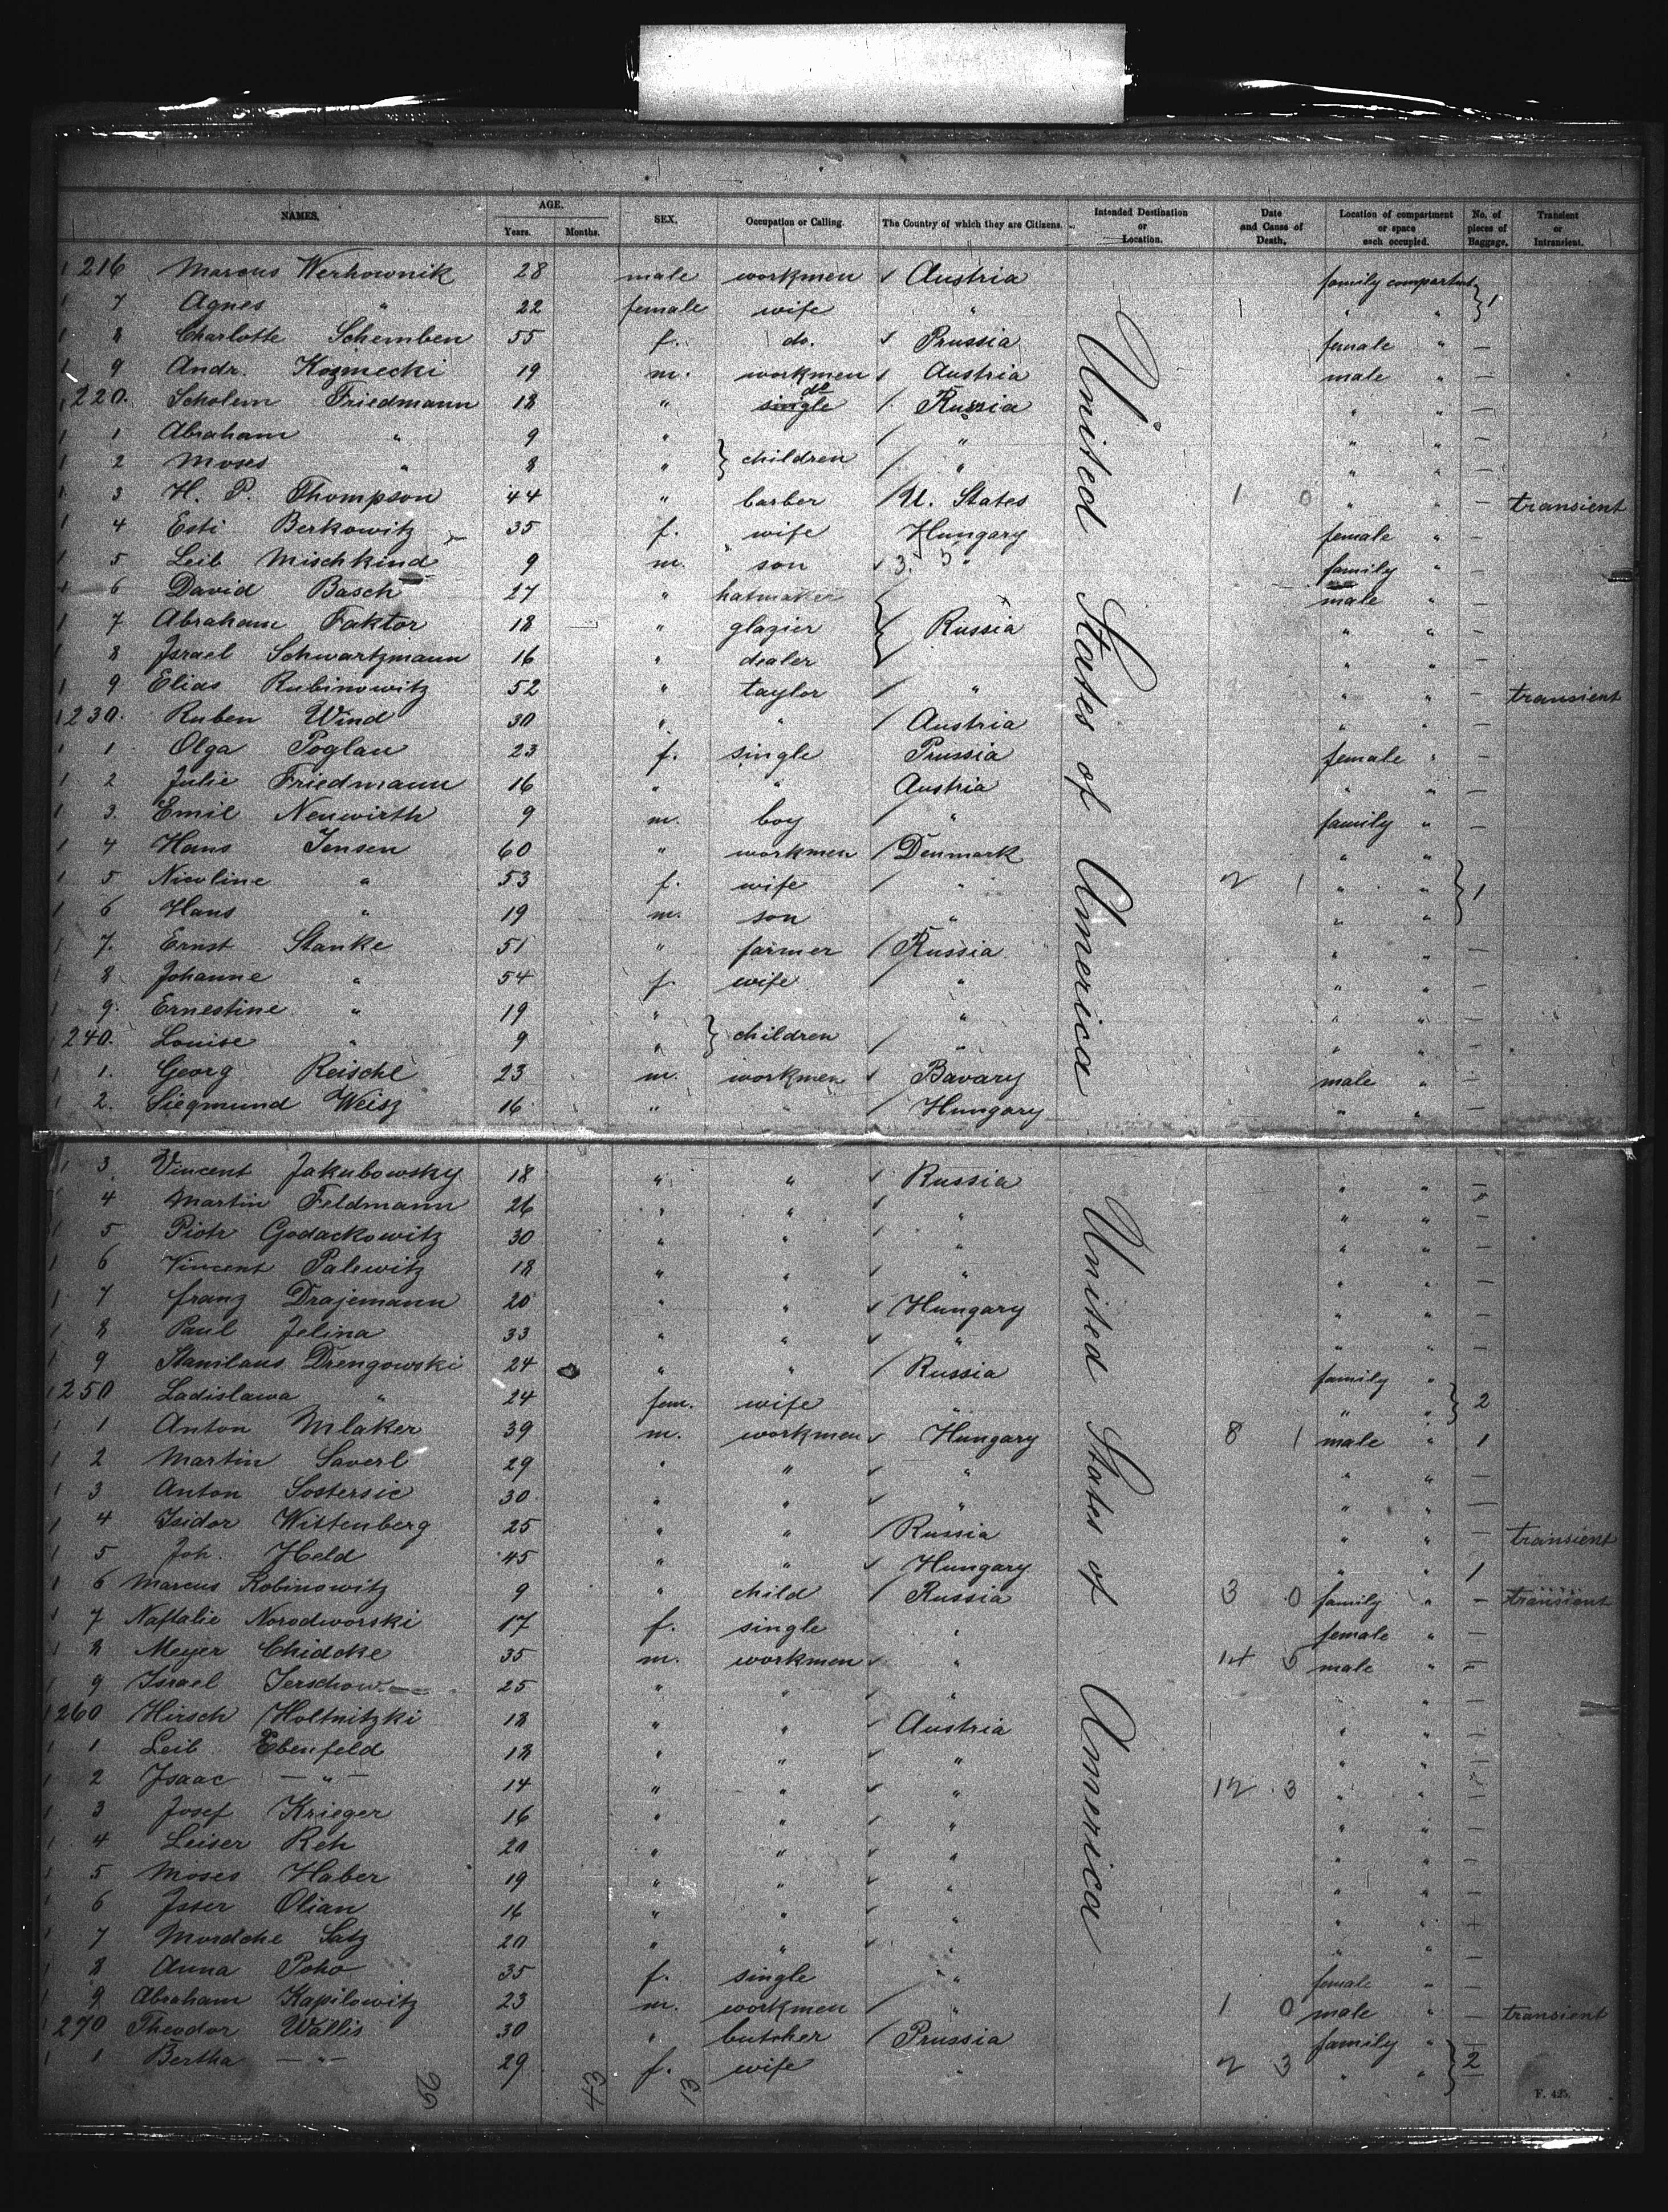 NAMES. AGE. Years. Months. SEX. Occupation or Calling. The Country of which they are Citizens. Intended Destination or Location. Date and Cause of Death. Location of compartment or space each occupied. No. of pieces of Baggage. Transient or Intransient.
1 216 Marcus Werhownik 28 male workmen Austria family compartmt
1 7 Agnes " 22 female wife " 1 " " } 1
1 8 Charlotte Schemben 55 f. do. Prussia female " —
1 9 Andr. Kozmecki 19 m. workmen Austria male " —
1 220. Scholem Friedmann 18 " single do Russia " " —
1 1 Abraham " 9 " } children " " " —
1 2 Moses " 8 " " " " —
1 3 H. P. Thompson 44 " barber U. States 1 0 " " — transient
1 4 Esti Berkowitz 35 f. wife Hungary female " —
1 5 Leib Mischkind 9 m. son " family " —
1 6 David Basch 27 " hatmaker male " —
1 7 Abraham Faktor 18 " glazier } Russia " " —
1 8 Israel Schwartzmann 16 " dealer " " —
1 9 Elias Rubinowitz 52 " taylor " " " — transient
1 230. Ruben Wind 30 " " Austria " " —
1 1 Olga Poglau 23 f. single Prussia female " —
1 2 Julie Friedmann 16 " " Austria " " —
1 3. Emil Neuwirth 9 m. boy " family " —
1 4 Hans Jensen 60 " workmen Denmark " "
1 5 Nicoline " 53 f. wife " 2 1 " " } 1
1 6 Hans " 19 m. son " " "
1 7. Ernst Stanke 51 " farmer Russia " " —
1 8 Johanne " 54 f. wife " " " —
1 9. Ernestine " 19 " } children " " " —
1 240. Louise " 9 " " " " —
1 1. Georg Reischl 23 m. workmen Bavary male " —
1 2. Siegmund Weisz 16 " " Hungary " " —
United States of America
1 3 Vincent Jakubowsky 18 " " Russia " " —
1 4 Martin Feldmann 26 " " " " " —
1 5 Piotr Godackowitz 30 " " " " " —
1 6 Vincent Palewitz 18 " " " " " —
1 7 Franz Drajemann 20 " " Hungary " " —
1 8 Paul Jelina 33 " " " " " —
1 9 Stanilaus Drengowski 24 " " Russia family "
1 250 Ladislawa " 24 fem. wife " " " } 2
1 1 Anton Mlaker 39 m. workmen Hungary 8 1 male " 1
1 2 Martin Saverl 29 " " " " " —
1 3 Anton Sostersic 30 " " " " " —
1 4 Isidor Wittenberg 25 " " Russia " " — transient
1 5 Joh. Held 45 " " Hungary " " 1
1 6 Marcus Robinowitz 9 " child Russia 3 0 family " — transient
1 7 Naftalie Norodworski 17 f. single " female " —
1 8 Meyer Chidcke 35 m. workmen " 14 5 male " —
1 9 Israel Jerschow 25 " " " " " —
1 260 Hirsch Holtnitzki 18 " " Austria " " —
1 1 Leib Ebenfeld 18 " " " " " —
1 2 Isaac — " — 14 " " " 12 3 " " —
1 3 Josef Krieger 16 " " " " " —
1 4 Leiser Reh 20 " " " " " —
1 5 Moses Haber 19 " " " " " —
1 6 Isser Olian 16 " " " " " —
1 7 Mordche Satz 20 " " " " " —
1 8 Anna Poho 35 f. single " female " —
1 9 Abraham Kapilowitz 23 m. workmen " 1 0 male " — transient
1 270 Theodor Wallis 30 " butcher Prussia family "
1 1 Bertha — " — 29 f. wife " 2 3 " " } 2
United States of America
43 13
F. 425.